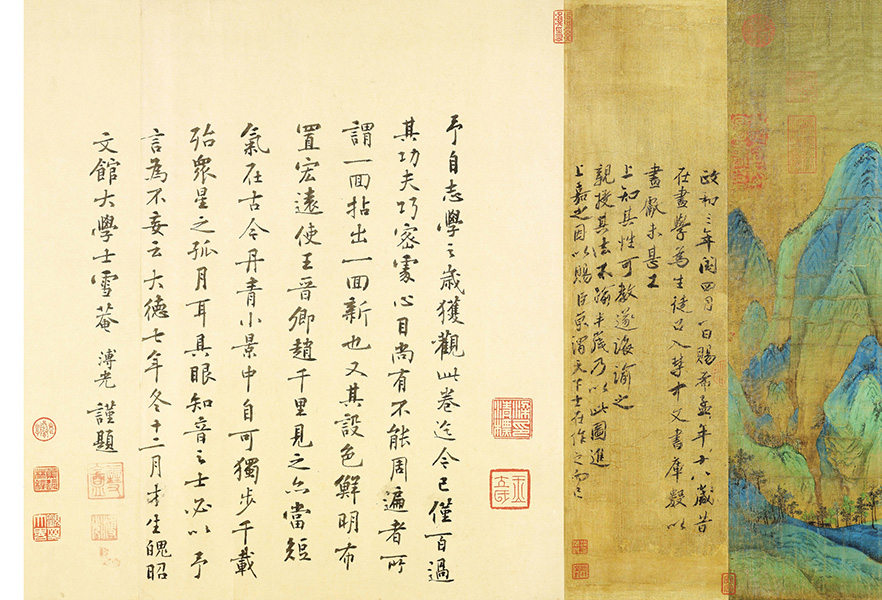 政和三年閏四月一日賜希孟年十八歲昔
在畫學爲生徒召入禁中文書庫數以
畫獻未甚工
上知其性可教遂誨諭之
親授其法不踰半歲乃以此圖進
上嘉之因以賜臣京謂天下士在作之而已
予自志學之歲獲觀此卷迄今已僅百過
其功夫巧密處心目尚有不能周遍者所
謂一面拈出一面新也又其設色鮮明布
置宏遠使王晉卿趙千里見之亦當短
氣在古今丹青小景中自可獨步千載
殆眾星之孤月耳具眼知音之士必以予
言為不妄云大德七年冬十二月才生魄昭
文館大學士雪菴溥光謹題